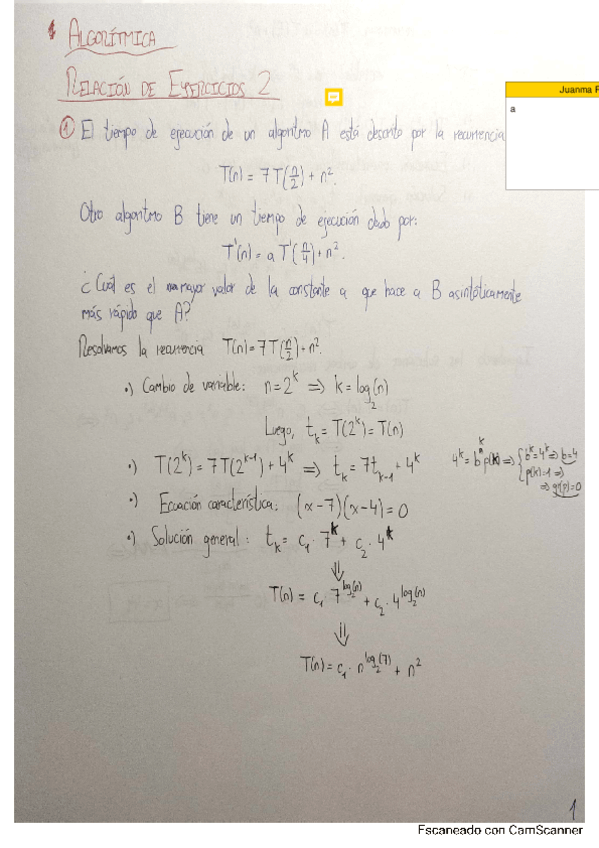 1 ALGORÍTMICA
RELACIÓN DE EJERCICIOS 2
Juanma F
a
① El tiempo de ejecución de un algoritmo A está descrito por la recurrencia
T(n) = 7T(n/2) + n².
Otro algoritmo B tiene un tiempo de ejecución dado por:
T'(n) = a T'(n/4) + n².
¿Cuál es el mayor valor de la constante a que hace a B asintóticamente
más rápido que A?
Resolvamos la recurrencia T(n) = 7T(n/2) + n².
•) Cambio de variable: n = 2^k ⟹ k = log₂(n)
Luego, t_k = T(2^k) = T(n)
•) T(2^k) = 7T(2^(k-1)) + 4^k ⟹ t_k = 7t_(k-1) + 4^k
4^k = b^k p(k) ⟹ { b^k = 4^k ⟹ b = 4
p(k) = 1 ⟹
⟹ gr(p) = 0
•) Ecuación característica: (x-7)(x-4) = 0
•) Solución general: t_k = c₁ · 7^k + c₂ · 4^k
⇓
T(n) = c₁ · 7^(log₂(n)) + c₂ · 4^(log₂(n))
⇓
T(n) = c₁ · n^(log₂(7)) + n²
1
Escaneado con CamScanner